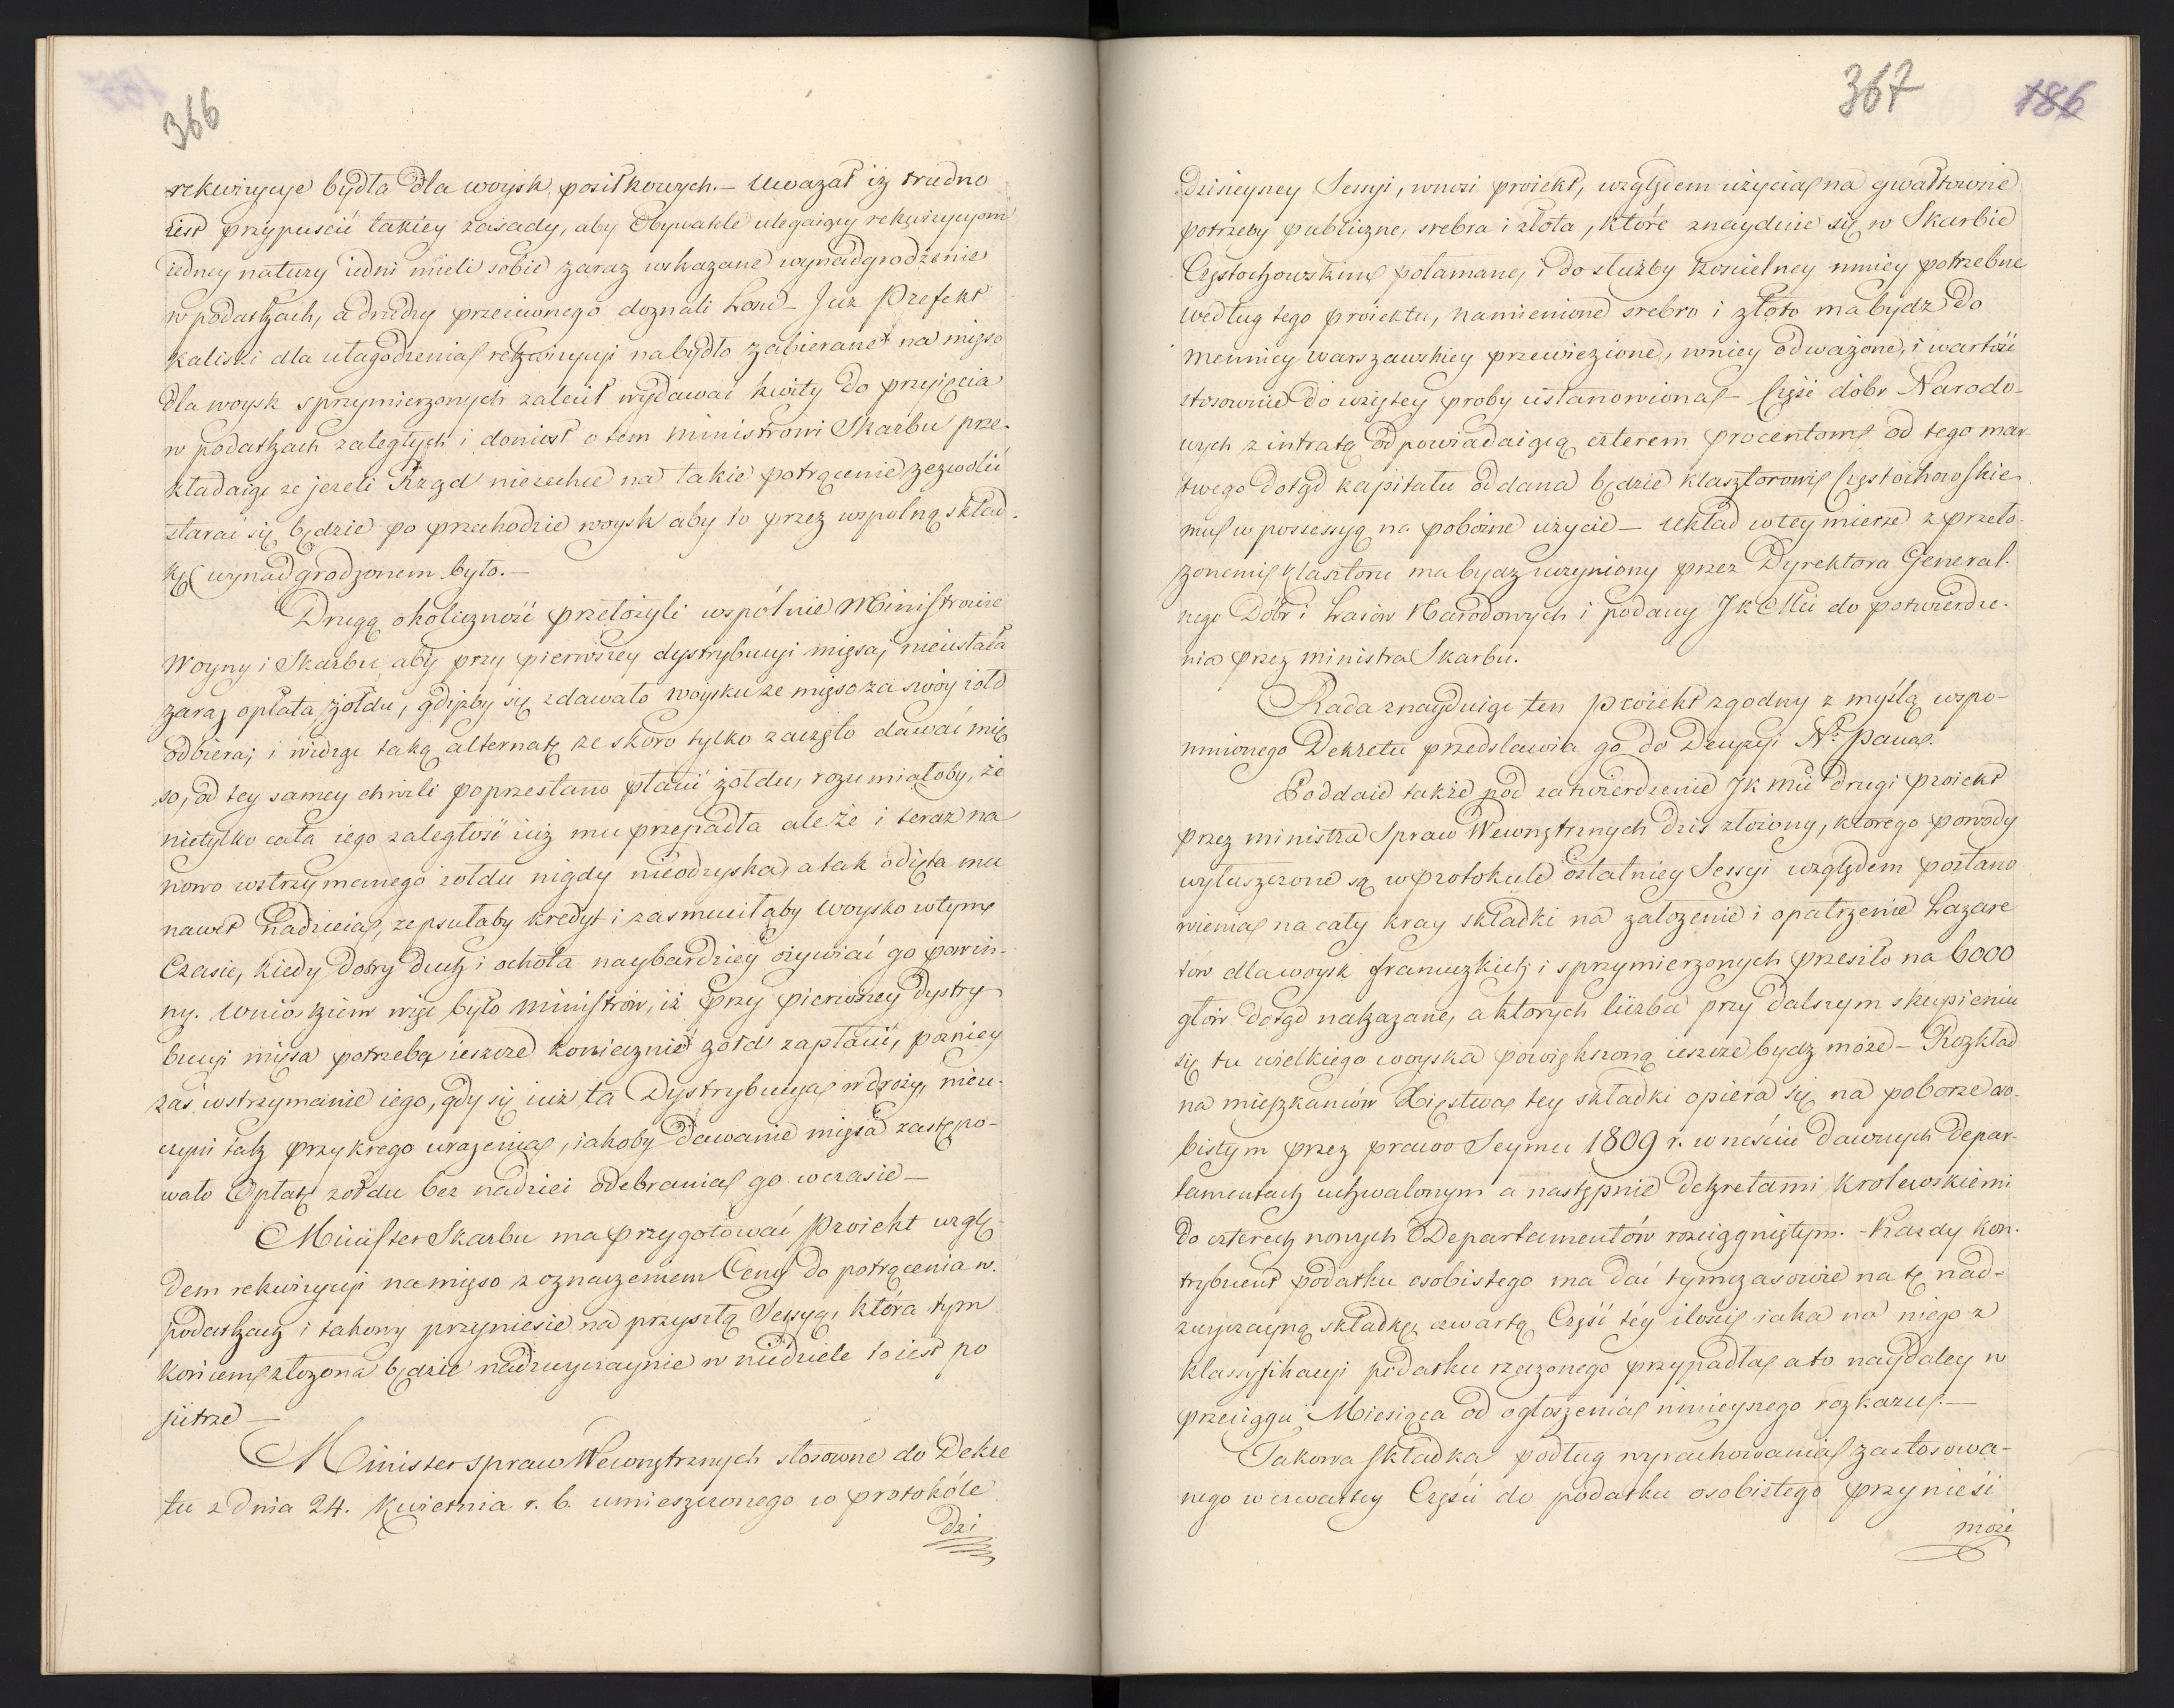 366
rekwizycye bydła dla woysk posiłkowych. – Uważał iż trudno
iest przypuścić takiey zasady, aby Obywatele ulegaiący rekwizycyom
iedney natury iedni mieli sobie zaraz wskazane wynadgrodzenie
w podatkach, a drudzy przeciwnego doznali Losu – Już Prefekt
Kaliski dla ułagodzenia rekwizycyi na bydło zabierane na mięso
dla woysk sprzymierzonych zalecił wydawać kwity do przyięcia
w podatkach zaległych i doniosł o tem Ministrowi Skarbu prze-
kładaiąc ze jezeli Rząd niezechce na takie potrącenie zezwolić
starać się będzie po przechodzie woysk aby to przez wspolną skład-
kę wynadgrodzonem było. –
Drugą okoliczność przełożyli wspólnie Ministrowie
Woyny i Skarbu, aby przy pierwszey dystrybucyi mięsa, nieustała
zaraz opłata żołdu, gdyżby się zdawało woysku ze mięso za swóy żołd
odbiera; i widząc taką alternatę ze skoro tylko zaczęto dawać mię
so, od tey samey chwili poprzestano płacić żołdu, rozumiałoby, że
nietylko cała iego zaległość iuż mu przepadła ale że i teraz na
nowo wstrzymanego żołdu nigdy nieodzyska, a tak odięta mu
nawet nadzieia, zepsułaby kredyt i zasmuciłaby Woysko w tym
Czasie, kiedy dobry duch i ochota naybardziey ożywiać go powin-
ny. Wnioskiem więc było Ministrów, iż przy pierwszey dystry
bucyi mięsa potrzeba ieszcze koniecznie żołd zapłacić, pozniey
zaś wstrzymanie iego, gdy się iuż ta Dystrybucya wdroży, nieu-
czyni tak przykrego wrażenia, iakoby dawanie mięsa zastępo-
wało Opłatę żołdu bez nadziei odebrania go w czasie –
Minister Skarbu ma przygotować Proiekt wzglę-
dem rekwizycyi na mięso z oznaczeniem Ceny do potrącenia w
podatkach i takowy przyniesie na przyszłą Sessyą, która tym
końcem złożona będzie nadzwyczaynie w niedziele to iest po
jutrze –
Minister spraw Wewnętrznych stosowne do Dekre
tu z dnia 24. Kwietnia r. b. umieszczonego w protokóle
dzi
367
186
dzisieyszey Sessyi, wnosi proiekt, względem użycia na gwałtowne
potrzeby publiczne, srebra i złota, które znayduie się w Skarbie
Częstochowskim połamane, i do służby kościelney mniey potrzebne
według tego proiektu, namienione srebro i złoto ma bydz do
mennicy warszawskiey przewiezione, w niey odważone, i wartość
stosownie do wziętey proby ustanowiona – Część dóbr Narodo-
wych z intratą odpowiadaiącą czterem procentom od tego mar
twego dotąd kapitału oddana będzie klasztorowi Częstochowskie
mu w possessyą na pobożne użycie – Układ w tey mierze z przeło-
żonemi klasztoru ma bydz uczyniony przez Dyrektora General-
nego Dóbr i Lasów Narodowych i podany JKMci do potwierdze-
nia przez ministra Skarbu.
Rada znayduiąc ten proiekt zgodny z myślą wspo-
mnionego Dekretu przedstawia go do Decyzyi Nº Pana.
Poddaie także pod zatwierdzenie JKMci drugi proiekt
przez ministra Spraw Wewnętrznych dziś złożony, ktorego powody
wyłuszczone są w protokule ostatniey Sessyi względem postano
wienia na cały kray składki na założenie i opatrzenie Lazare
tów dla woysk francuzkich i sprzymierzonych przeszło na 6000
głów dotąd nakazane, a ktorych liczba przy dalszym skupieniu
się tu wielkiego woyska powiększoną ieszcze bydz może – Rozkład
na mieszkańców Xięstwa tey składki opiera się na poborze oso-
bistym przez prawo Seymu 1809 r. w sześciu dawnych Depar-
tamentach uchwalonym a następnie dekretami Krolewskiemi
do czterech nowych Departamentów rozciągniętym. – Każdy kon-
trybuent podatku osobistego ma dać tymczasowie na tę nad-
zwyczayną składkę czwartą Część téy ilości iaka na niego z
klassyfikacyi podatku rzeczonego przypadła a to naydaley w
przeciągu Miesiąca od ogłoszenia ninieyszego rozkazu. –
Takowa składka podług wyrachowania zastosowa-
nego w czwartey Części do podatku osobistego przynieść
może